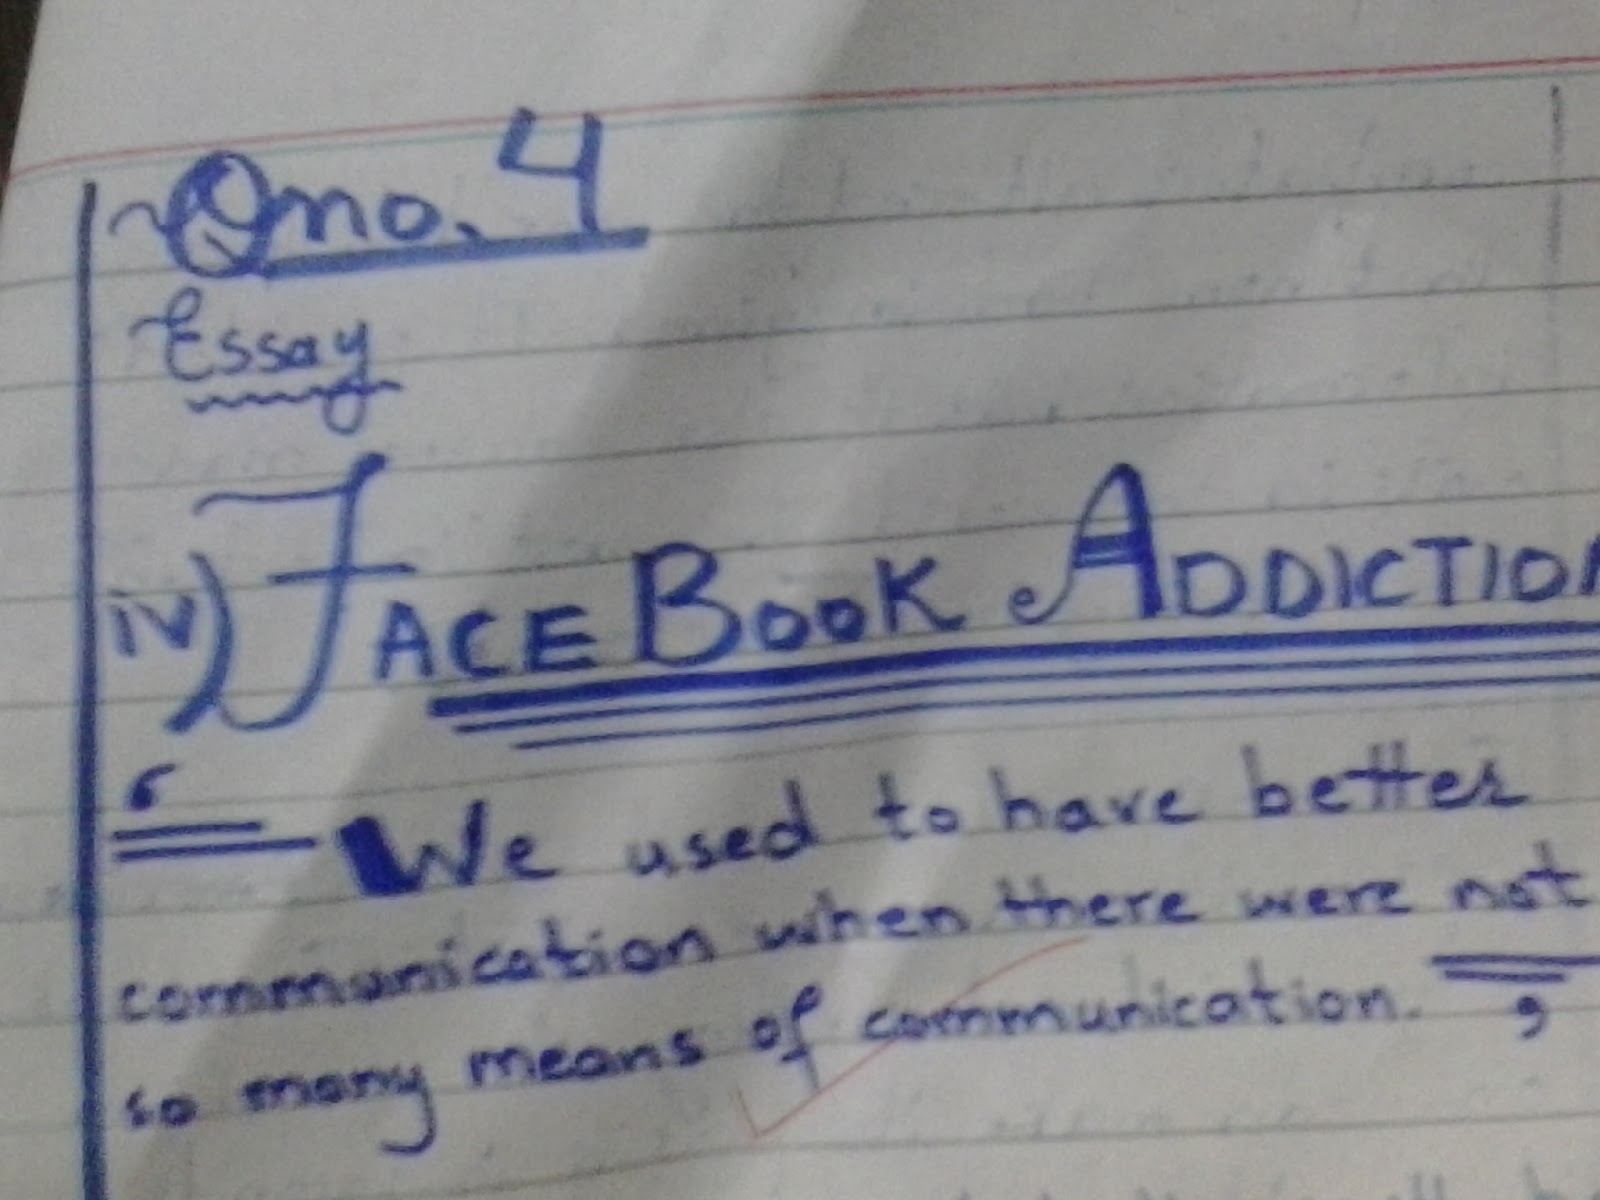 Qno. 4
Essay
iv) FACEBOOK ADDICTION
‘ We used to have better
communication when there were not
so many means of communication. ’